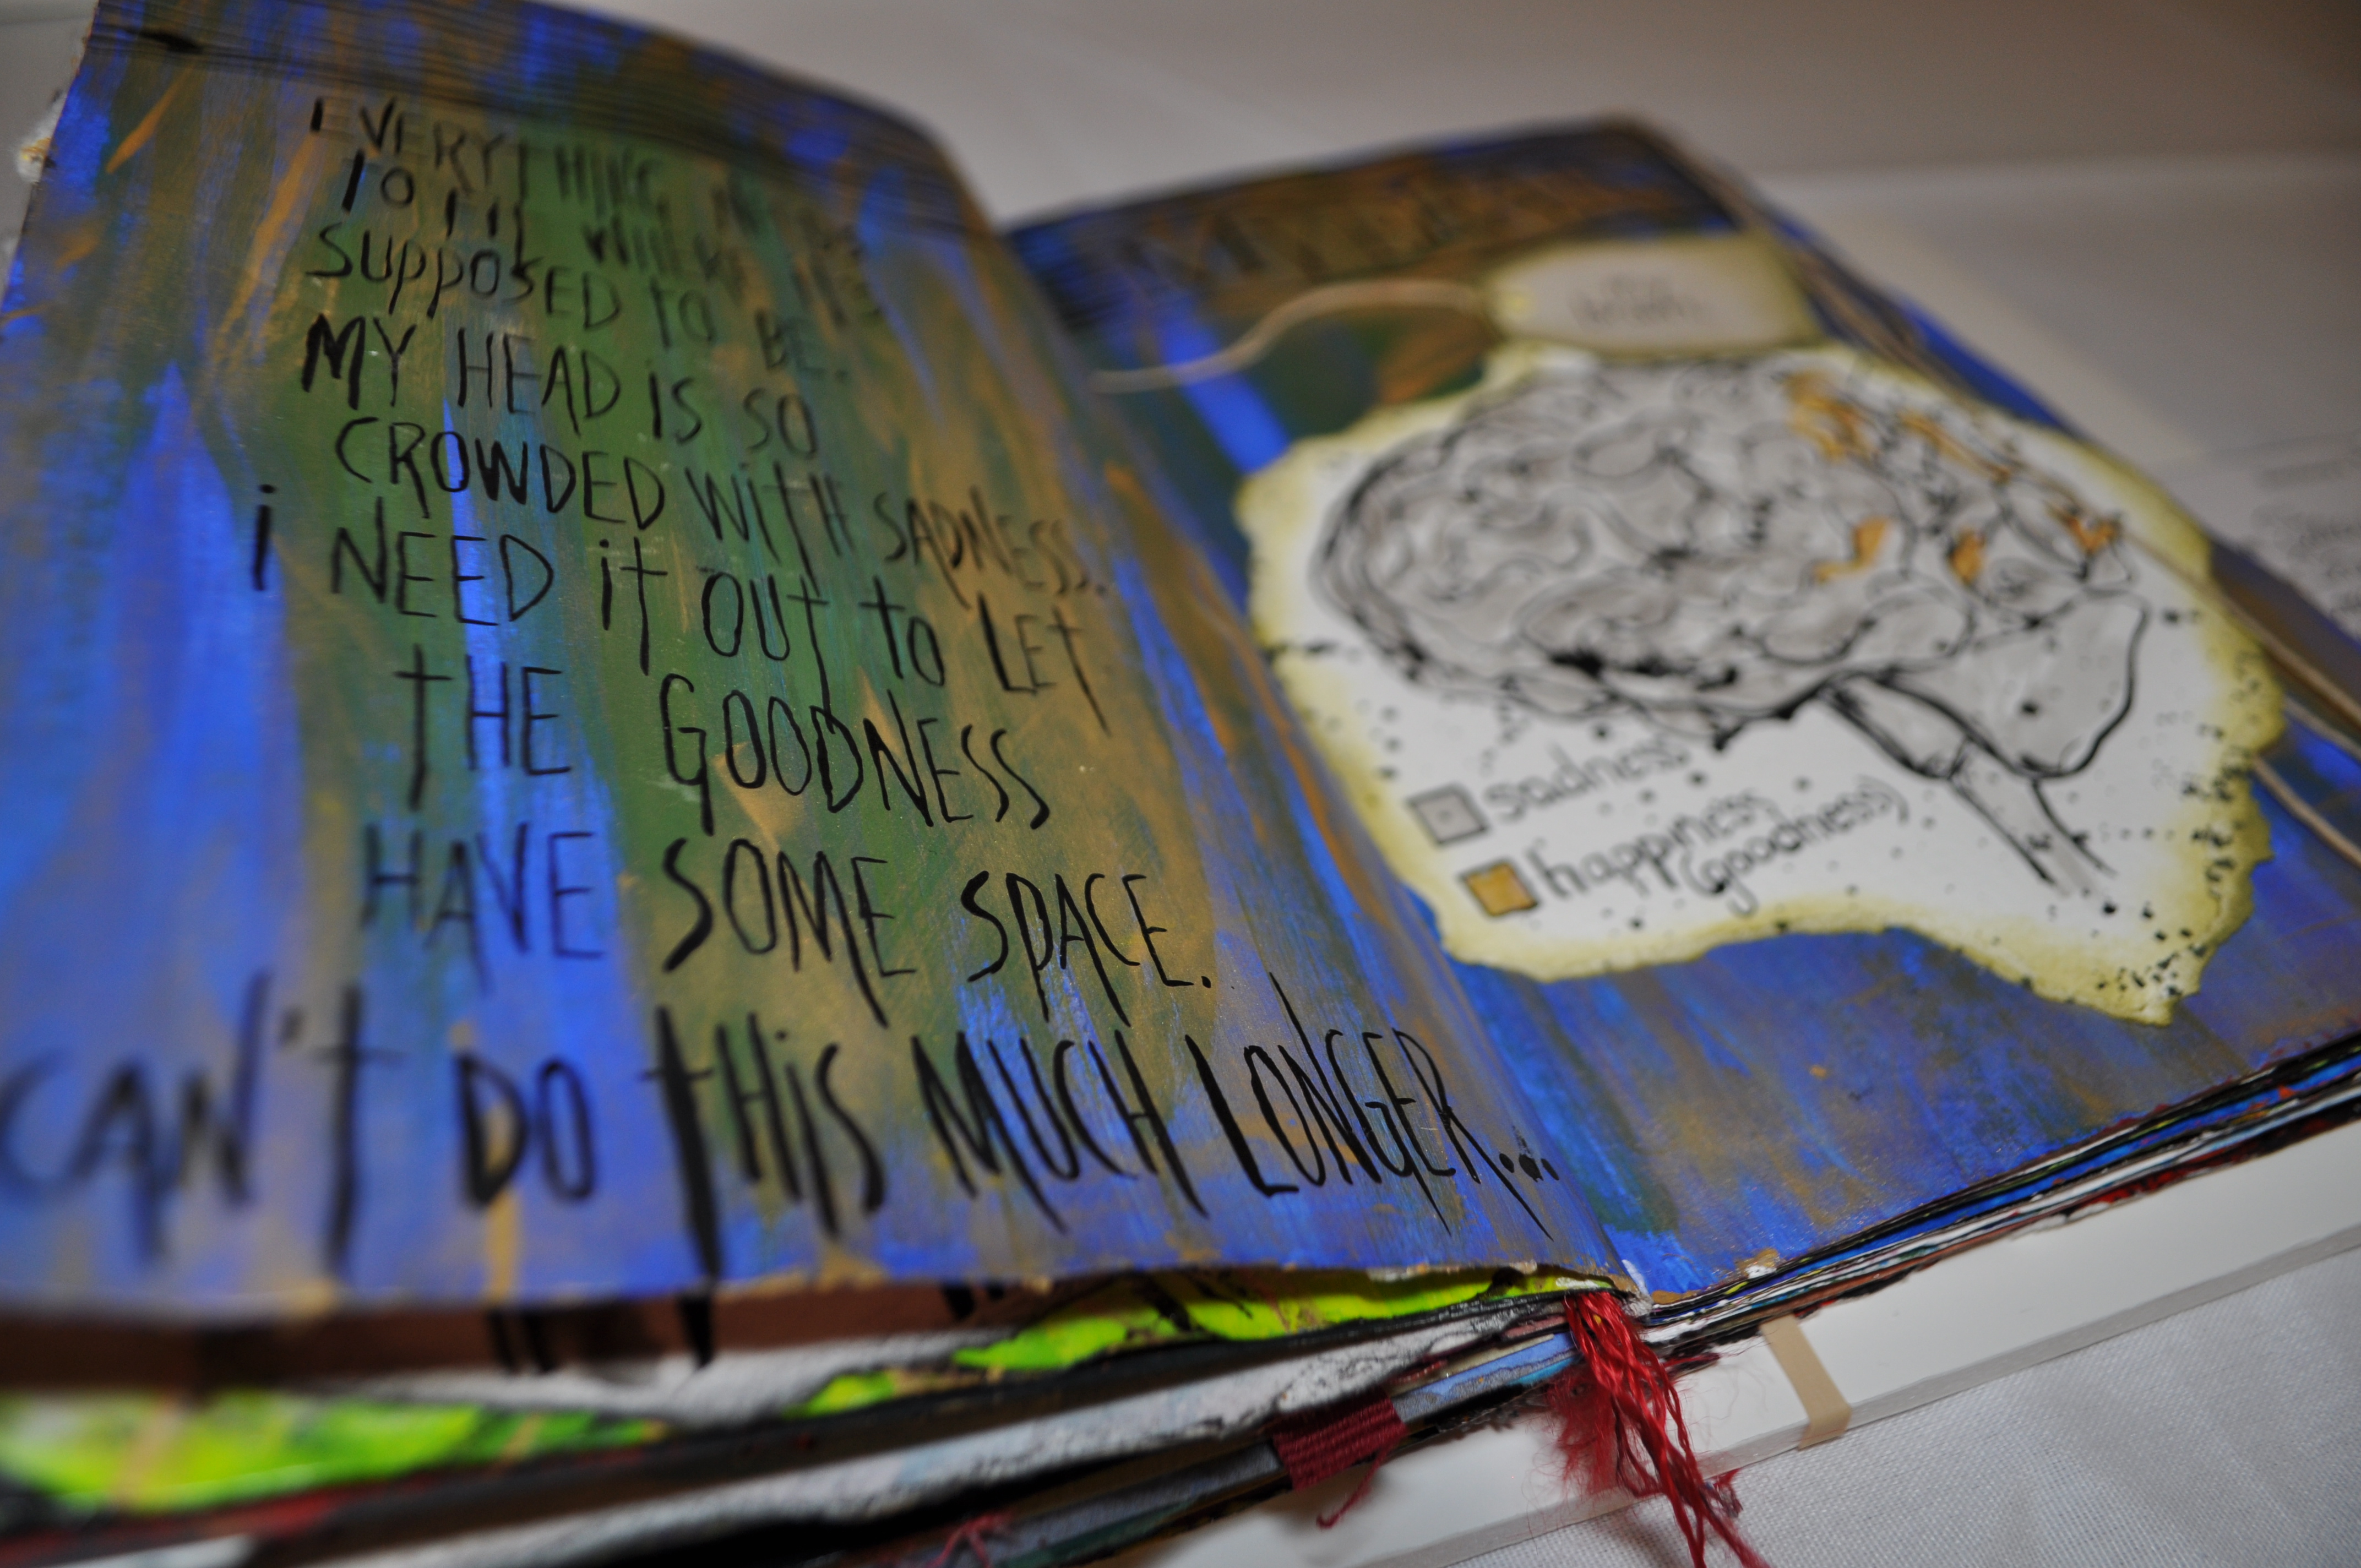 EVERYTHING
SUPPOSED TO BE.
MY HEAD IS SO
CROWDED WiTH SADNESS.
i NEED iT OUT TO LET
THE GOODNESS
HAVE SOME SPACE.
CAN'T DO THiS MUCH LONGER...
sadness
happiness
(goodness)